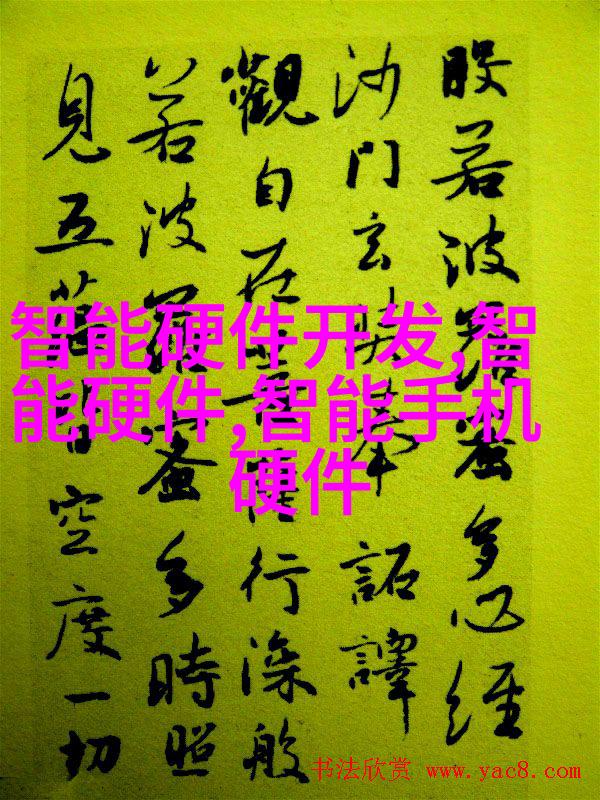 般若波羅蜜多心經
沙門玄奘奉 詔譯
觀自在菩薩行深般
若波羅蜜多時照
見五蘊皆空度一切
智能硬件开发,智
能硬件,智能手机
硬件
书法欣赏 www.yac8.com